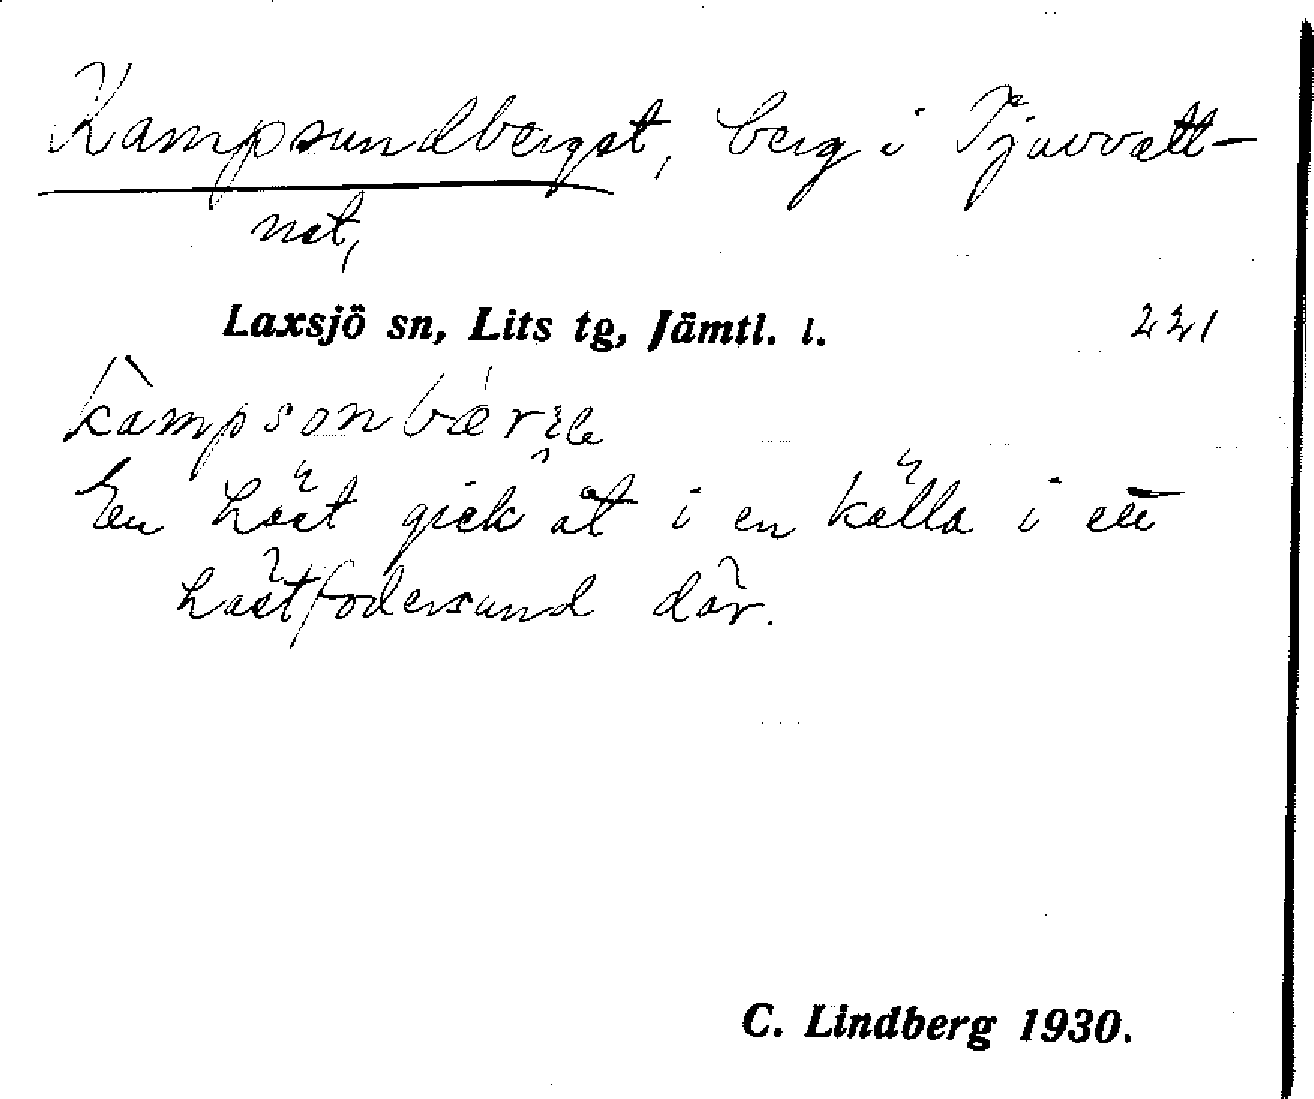 Kampsundberget, berg i Tjuvvatt-
net,
Laxsjö sn, Lits tg, Jämtl. l. 221
En häst gick åt i en källa i ett
hästfodersund där.
C. Lindberg 1930.